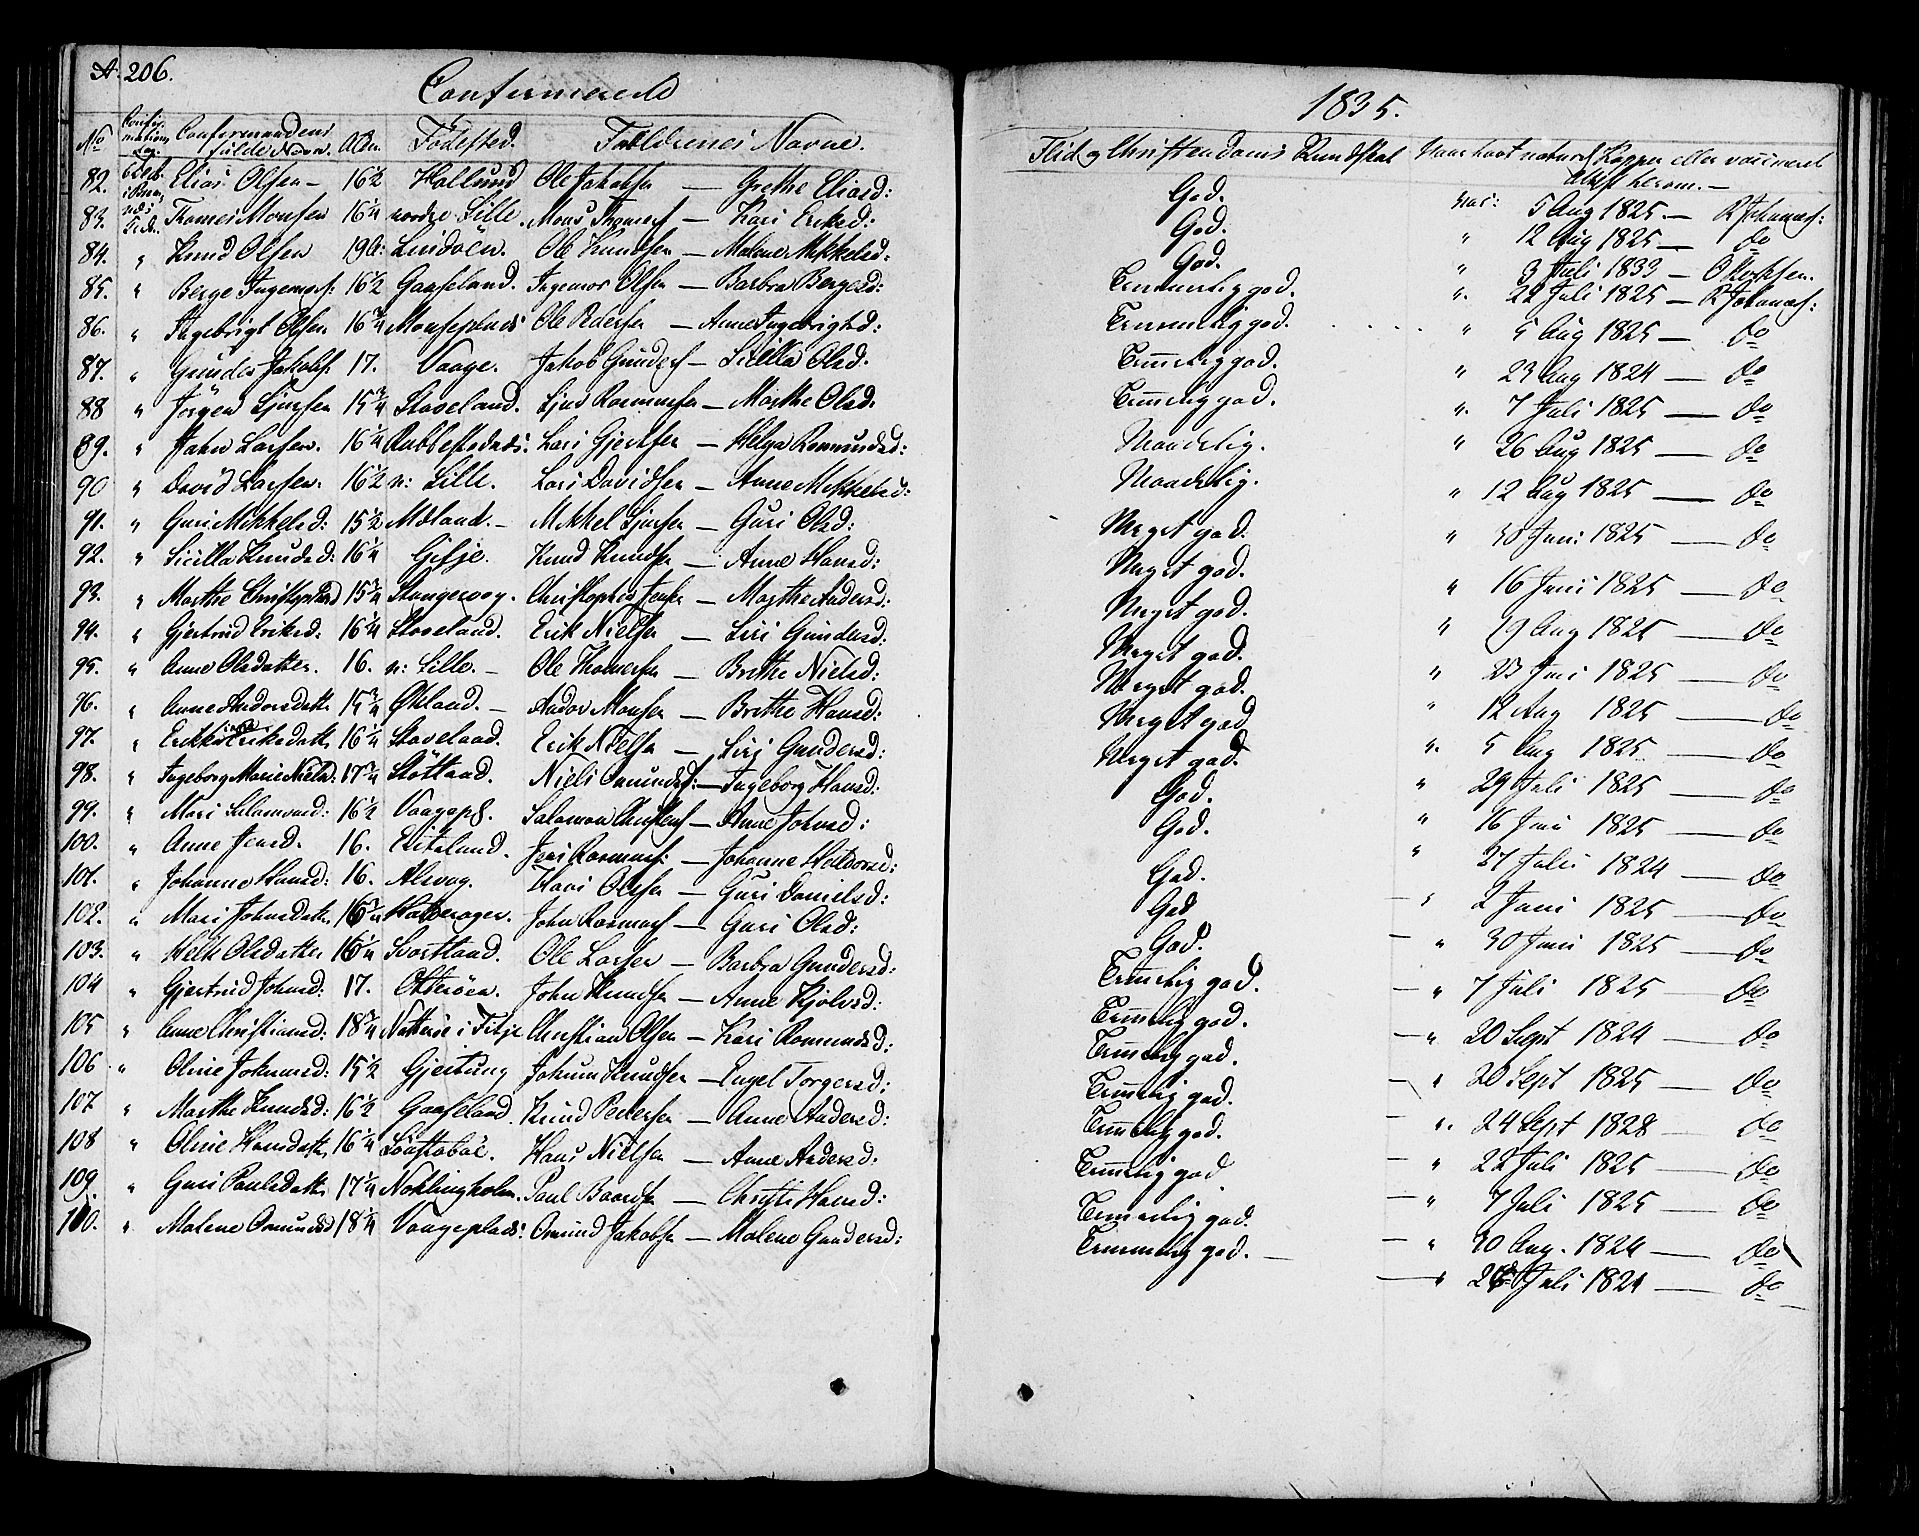 A. 206.
Confirmerede
1835.
No Confirmations Dag. Confirmandens fulde Navn. Ald. Födested. Forældrenes Navne. Flid og Christendoms Kundskab Naar havt naturl. Kopper eller vaccineret Attest herom.
82. Elias Olsen 16½ Hollund Ole Jakobsen — Grethe Eliasd: God. vac: 5 Aug 1825 — R Johannes:
83. Thomas Monsen 16¼ nordre Lille. Mons Thomess — Kari Eriksd: God. " 12 Aug 1825 — do
84. " Knud Olsen 19 a: Lindöen. Ole Knudsen — Malene Mikkelsd: God. " 3 Juli 1833 — O
85. " Berge Ingemors: 16½ Gaaseland. Ingemor Olsen — Barbra Bergesd: Temmelig god. " 22 Juli 1825 — R Johannes:
86. " Ingebrigt Olsen 16¾ Monseplads Ole Pedersen — Anne Ingebrigtsd: Temmelig god. " 5 Aug 1825 — do
87. " Gunder Jakobs: 17. Vaage. Jakob Gunders — Sicilla Olsd. Temelig god. " 23 Aug 1824 — do
88 " Jörgen Sjursen 15¾ Staveland. Sjur Rasmusen — Marthe Olsd. Temelig god. " 7 Juli 1825 — do
89. " John Larsen. 16¼ Lars Gjertsen — Helga Romundsd: Maadelig. " 26 Aug 1825 — do
90 " David Larsen. 16½ n: Lille. Lars Davidsen — Anne Mikkelsd: Maadelig. " 12 Aug 1825 — do
91. " Guri Mikkelsd: 15½ Mæland. — Mikkel Sjursen — Guri Olsd: Meget god. " 30 Juni 1825 — do
92. " Sicilla Knudsd: 16¼ Gifje. Knud Knudsen — Anne Hansd: Meget god. " 16 Juni 1825 — do
93. " Marthe Christophersd 15¾ Stangervog. Christopher Jensen — Marthe Andersd: Meget god. " 19 Aug 1825 — do
94. " Gjertrud Eriksd: 16¼ Staveland. Erik Nielsen — Siri Gundersd: Meget god. " 23 Juni 1825 — do
95. " Anne Olsdatter. 16. n: Lille. — Ole Thomesen — Brithe Nielsd: Meget god. " 12 Aug 1825 — do
96. " Anne Andorsdatt. 15¾ Økland. — Andor Monsen — Brithe Hansd: Meget god. " 5 Aug 1825 — do
97. " Eriksdatt. 16¼ Staveland. Erik Nielsen — Siri Gundersd: Meget god. " 29 Juli 1825 — do
98. " Ingeborg Marie Nielsd. 17¾ Stötland. Niels Omunds: — Ingeborg Hansd: God. " 16 Juni 1825 — do
99. " Mari Salamonsd: 16½ Vaagepl. Salamon Christens — Anne Johnsd: God. " 27 Juli 1824 — do
100. " Anne Jensd. 16. Eidesland. Jens Rasmus: — Johanne Haldorsd: God. " 2 Juni 1825 — do
101. " Johanne Hansd: 16. Alsvog. Hans Olsen — Guri Danielsd: God " 30 Juni 1825 — do
102. " Mari Johnsdatt. 16¾ Halderager. John Rasmus — Guri Olsd: God. " 7 Juli 1825 — do
103. " Helle Olsdatter 16¼ Svortland. Ole Larsen — Barbra Gundersd: Temelig god. " 20 Sept 1824 — do
104 " Gjertrud Johnsd: 17. Otteröen. John Knudsen — Anne Kjolvsd: Temelig god. " 20 Sept 1825 — do
105 " Anne Christiansd: 18¾ i Fitje Christian Olsen — Kari Romundsd: Temelig god. " 24 Sept 1828 — do
106 " Oline Johannesd: 15½ Gjertung Johannes Knudsen — Engel Torgersd: Temelig god. " 22 Juli 1825 — do
107 " Marthe Knudsd: 16½ Gaaseland. Knud Pedersen — Anne Andersd: Temelig god. " 7 Juli 1825 — do
108 " Oline Hansdatt. 16¼ Hans Nielsen — Anne Andersd: Temelig god. " 30 Aug. 1824 — do
109. " Guri Paulsdatt. 17¼ Nøklingholm. Paul Baardsen — Christi Hansd: Temmelig god. " Juli 1824 — do
110. " Malene Omundsd 18¼ Vaageplads: Omund Jakobsen — Malene Gundersd: Temmelig god.